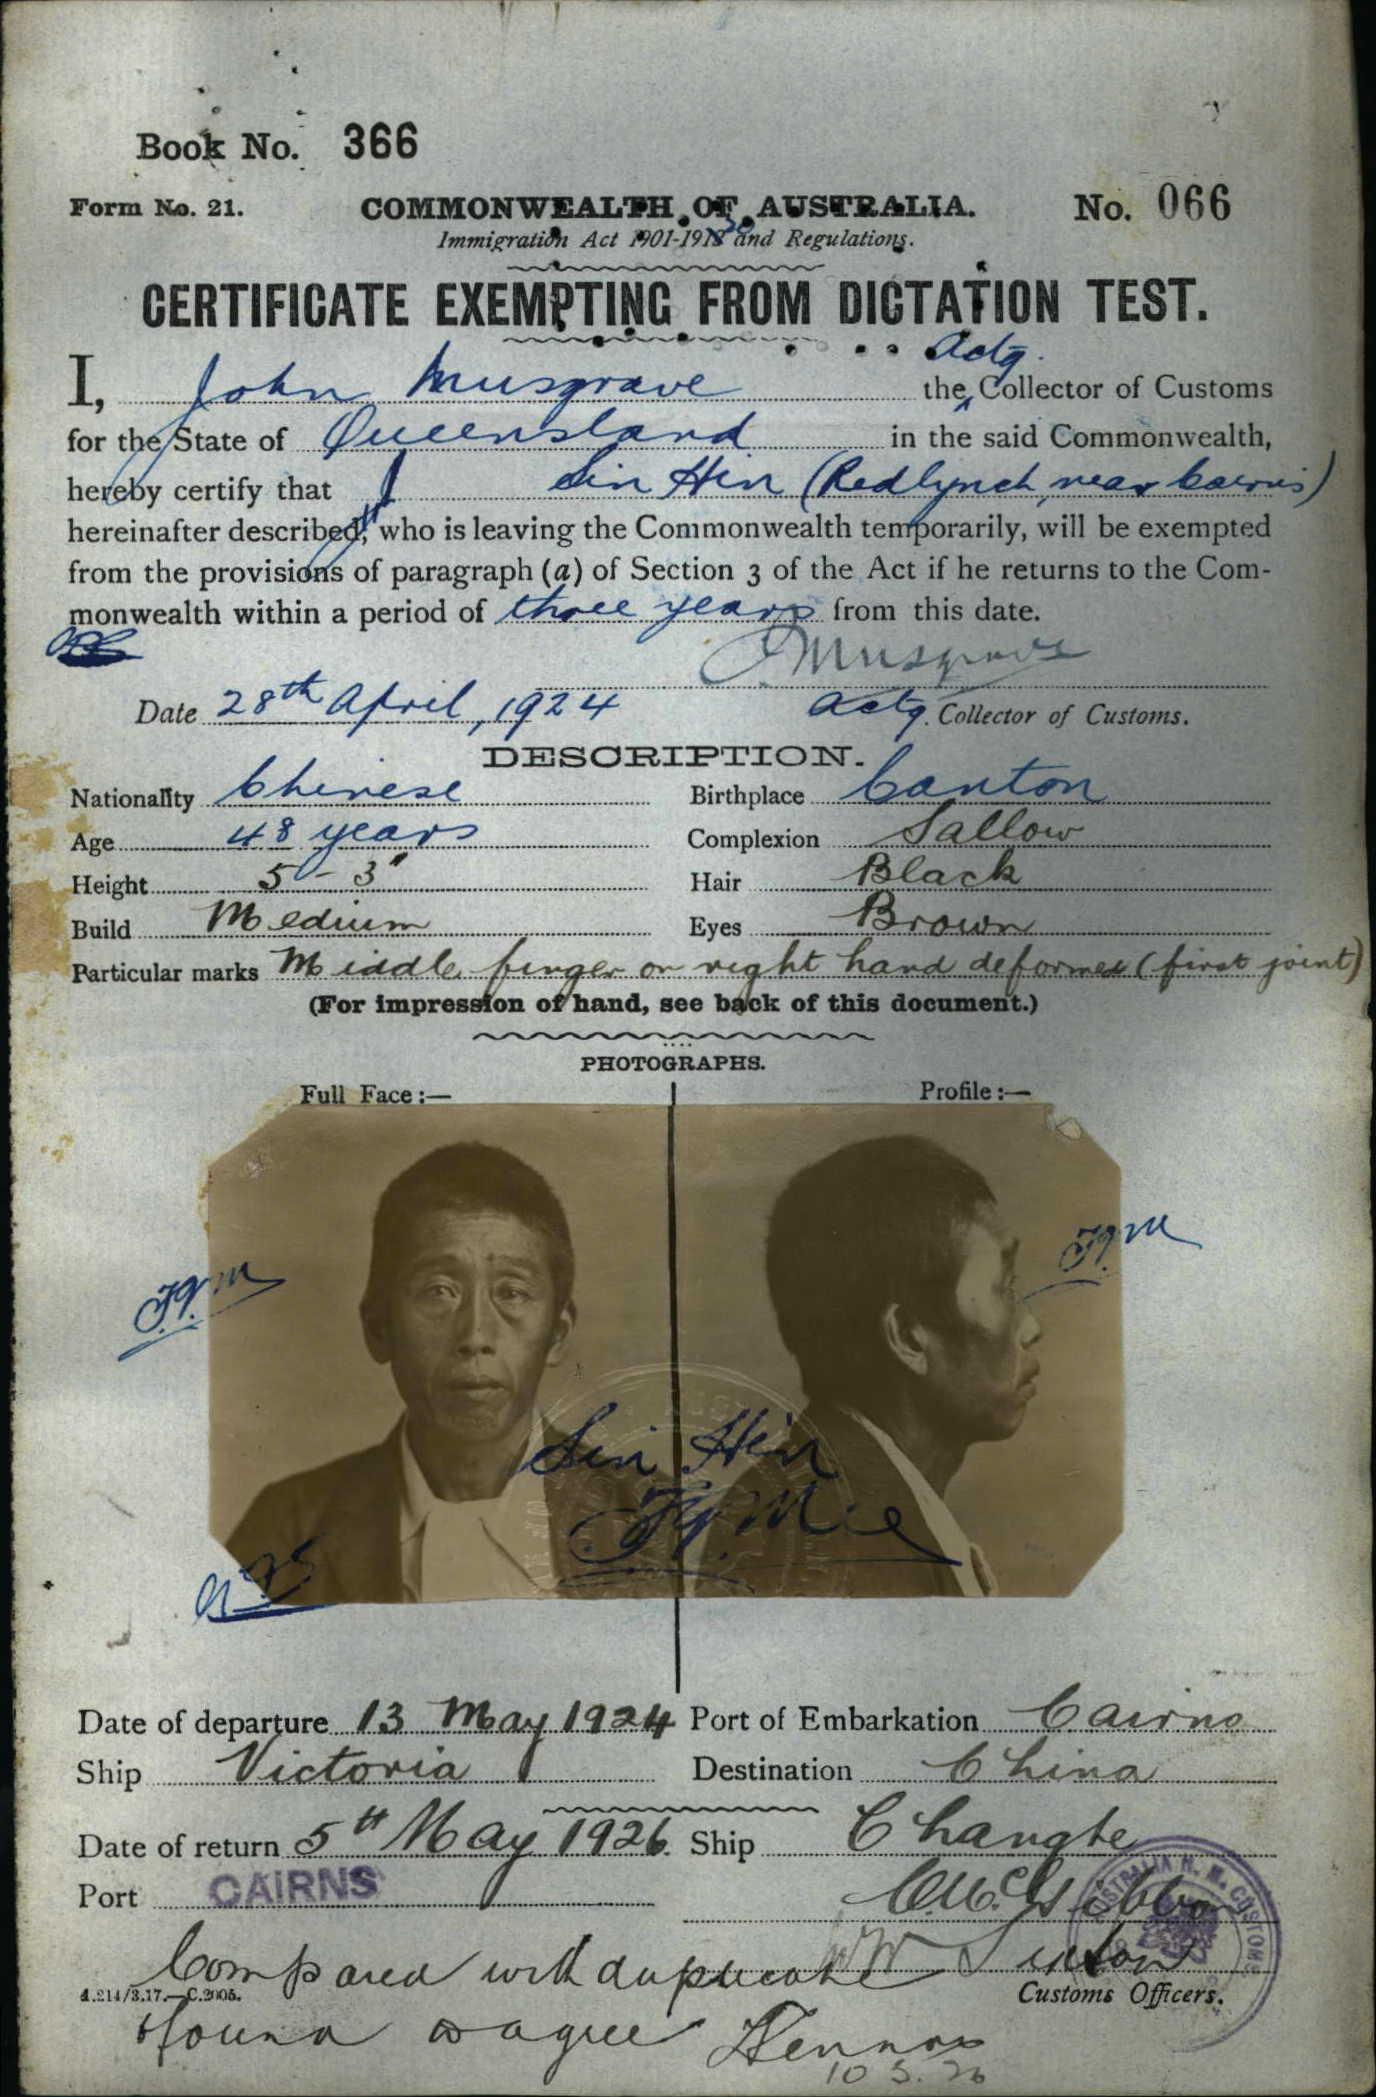 Book No. 366
Form No. 21.
COMMONWEALTH OF AUSTRALIA.
No. 066
Immigration Act 1901-1913 20 and Regulations.
CERTIFICATE EXEMPTING FROM DICTATION TEST.
I, John Musgrave the Actg. Collector of Customs
for the State of Queensland in the said Commonwealth,
hereby certify that Sin Hin (Redlynch, near Cairns)
hereinafter described, who is leaving the Commonwealth temporarily, will be exempted
from the provisions of paragraph (a) of Section 3 of the Act if he returns to the Com-
monwealth within a period of three years from this date.
J Musgrave
Date 28th April, 1924 Actg. Collector of Customs.
DESCRIPTION.
Nationality Chinese Birthplace Canton
Age 48 years Complexion Sallow
Height 5 - 3" Hair Black
Build Medium Eyes Brown
Particular marks Middle finger on right hand deformed (first joint)
(For impression of hand, see back of this document.)
PHOTOGRAPHS.
Full Face :— Profile :—
Sin Hin
Date of departure 13 May 1924 Port of Embarkation Cairns
Ship Victoria Destination China
Date of return 5th May 1926 Ship Changte
Port CAIRNS
AUSTRALIA H. M. CUSTOMS
Compared with duplicate
Customs Officers.
A.214/3.17.—C.2005.
found to agree
10 5. 26